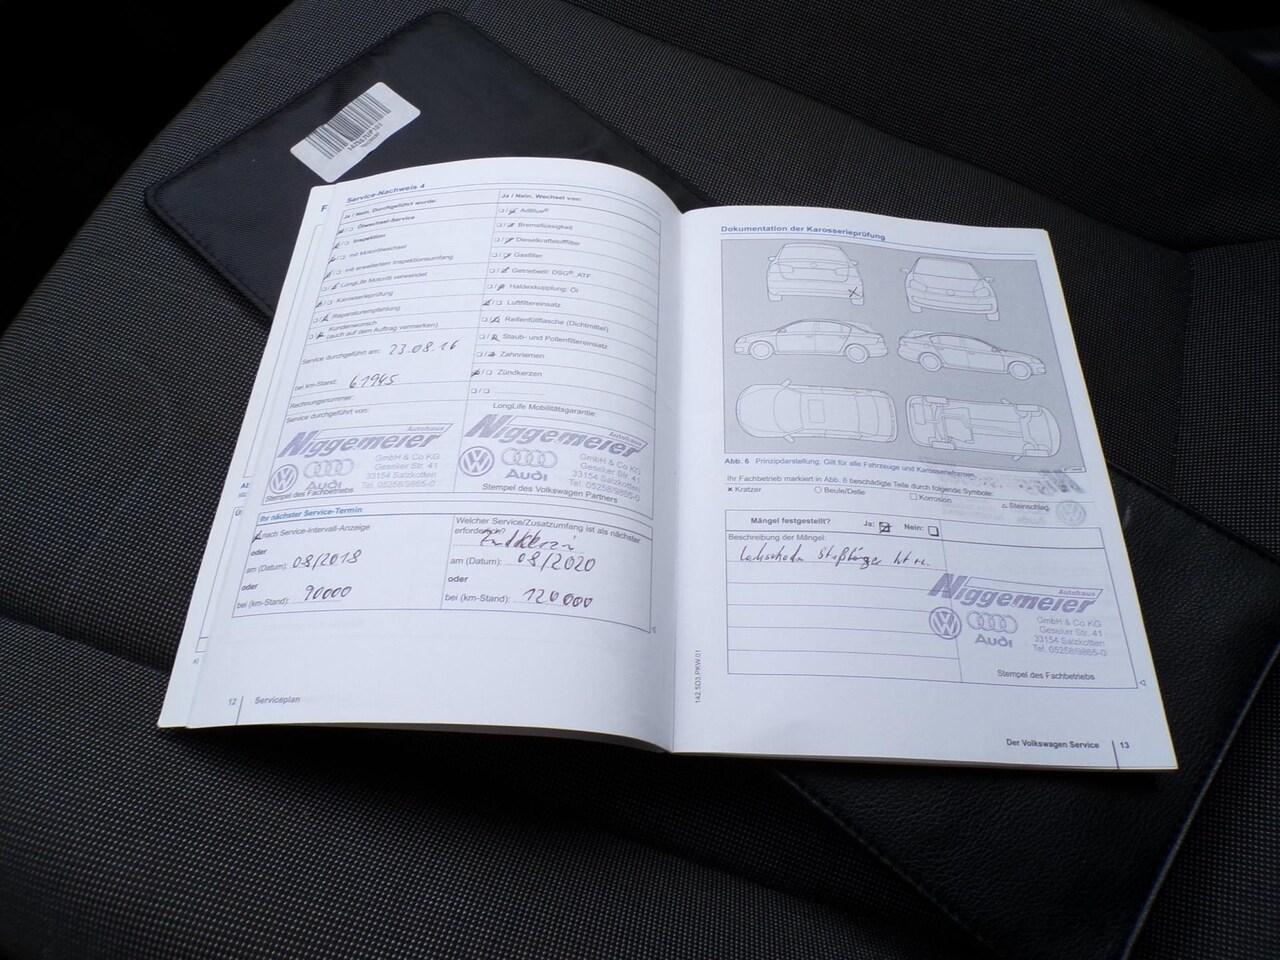 Service-Nachweis 4
Ja / Nein. Durchgeführt wurde:
Ölwechsel-Service
Inspektion
mit Motorölwechsel
mit erweitertem Inspektionsumfang
LongLife Motoröl verwendet
Karosserieprüfung
Reparaturempfehlung
Kundenwunsch
(auch auf dem Auftrag vermerken)
Service durchgeführt am: 23.08.16
bei km-Stand: 61945
Rechnungsnummer:
Service durchgeführt von:
Autohaus
Niggemeier
GmbH & Co KG
Geseker Str. 41
33154 Salzkotten
Tel. 05258/9865-0
Audi
Stempel des Fachbetriebs
Ja / Nein. Wechsel von:
AdBlue®
Bremsflüssigkeit
Dieselkraftstofffilter
Gasfilter
Getriebeöl: DSG®, ATF
Haldexkupplung: Öl
Luftfiltereinsatz
Reifenfüllflasche (Dichtmittel)
Staub- und Pollenfiltereinsatz
Zahnriemen
Zündkerzen
LongLife Mobilitätsgarantie:
Autohaus
Niggemeier
GmbH & Co KG
Geseker Str. 41
33154 Salzkotten
Tel. 05258/9865-0
Audi
Stempel des Volkswagen Partners
Ihr nächster Service-Termin
nach Service-Intervall-Anzeige
oder
am (Datum): 08/2018
oder
bei (km-Stand): 90000
Welcher Service/Zusatzumfang ist als nächster
erforderlich:
am (Datum): 08/2020
oder
bei (km-Stand): 120 000
12 Serviceplan
Dokumentation der Karosserieprüfung
Abb. 6 Prinzipdarstellung. Gilt für alle Fahrzeuge und Karosserieformen.
Ihr Fachbetrieb markiert in Abb. 6 beschädigte Teile durch folgende Symbole:
Kratzer
Beule/Delle
Korrosion
Steinschlag
Mängel festgestellt? Ja: Nein:
Beschreibung der Mängel:
Lackschaden Stoßfänger
Autohaus
Niggemeier
GmbH & Co KG
Geseker Str. 41
33154 Salzkotten
Tel. 05258/9865-0
Audi
Stempel des Fachbetriebs
142.5D3.PKW.01
Der Volkswagen Service 13